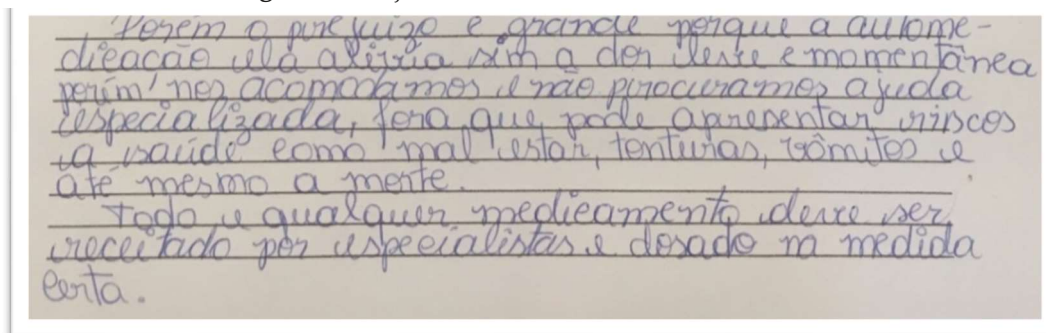 Porém o prejuizo e grande porque a autome-
dicação ela alivia sim a dor leve e momentânea
porém nos acomodamos e não procuramos ajuda
especializada, fora que pode apresentar riscos
a saúde como mal estar, tonturas, vômitos e
até mesmo a morte.
Todo e qualquer medicamento deve ser
receitado por especialistas e dosado na medida
certa.